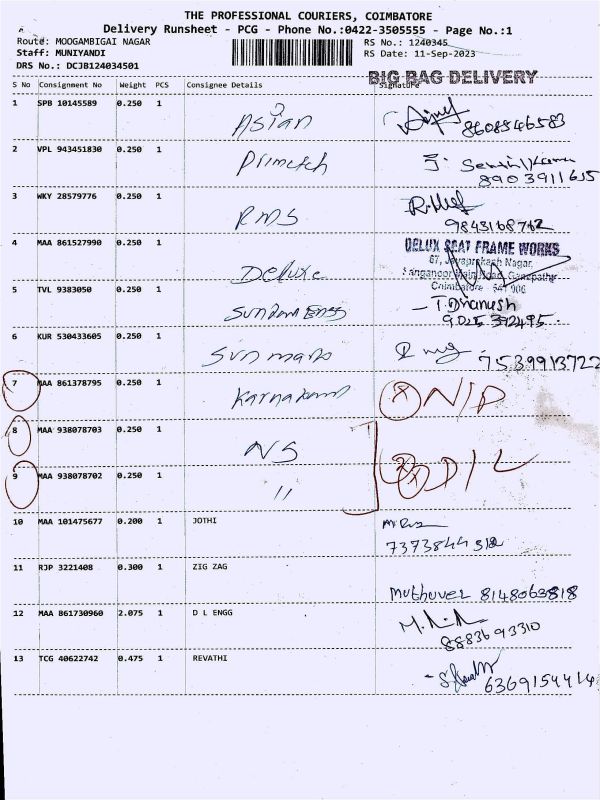 THE PROFESSIONAL COURIERS, COIMBATORE
Delivery Runsheet - PCG - Phone No.:0422-3505555 - Page No.:1
Route: MOOGAMBIGAI NAGAR RS No.: 1240345
Staff: MUNIYANDI RS Date: 11-Sep-2023
DRS No.: DCJB124034501
BIG BAG DELIVERY
S No Consignment No Weight PCS Consignee Details Signature
1 SPB 10145589 0.250 1 Asian
8608546583
2 VPL 943451830 0.250 1 Primetch
8903911615
3 WKY 28579776 0.250 1 RMS
9843168762
4 MAA 861527990 0.250 1 Deluxe
DELUX SEAT FRAME WORKS
67, Jayaprakash Nagar,
Sanganoor Main Road, Ganapathy
Coimbatore - 641 006
5 TVL 9383050 0.250 1 Sundaram Engg
T. Dhanush
6 KUR 530433605 0.250 1 Sun mark
7539913722
7 MAA 861378795 0.250 1 N/D
8 MAA 938078703 0.250 1 NS
9 MAA 938078702 0.250 1 "
D/L
10 MAA 101475677 0.200 1 JOTHI
7373844312
11 RJP 3221408 0.300 1 ZIG ZAG
Muthuvel 8148063818
12 MAA 861730960 2.075 1 D L ENGG
8883693310
13 TCG 40622742 0.475 1 REVATHI
6369154414